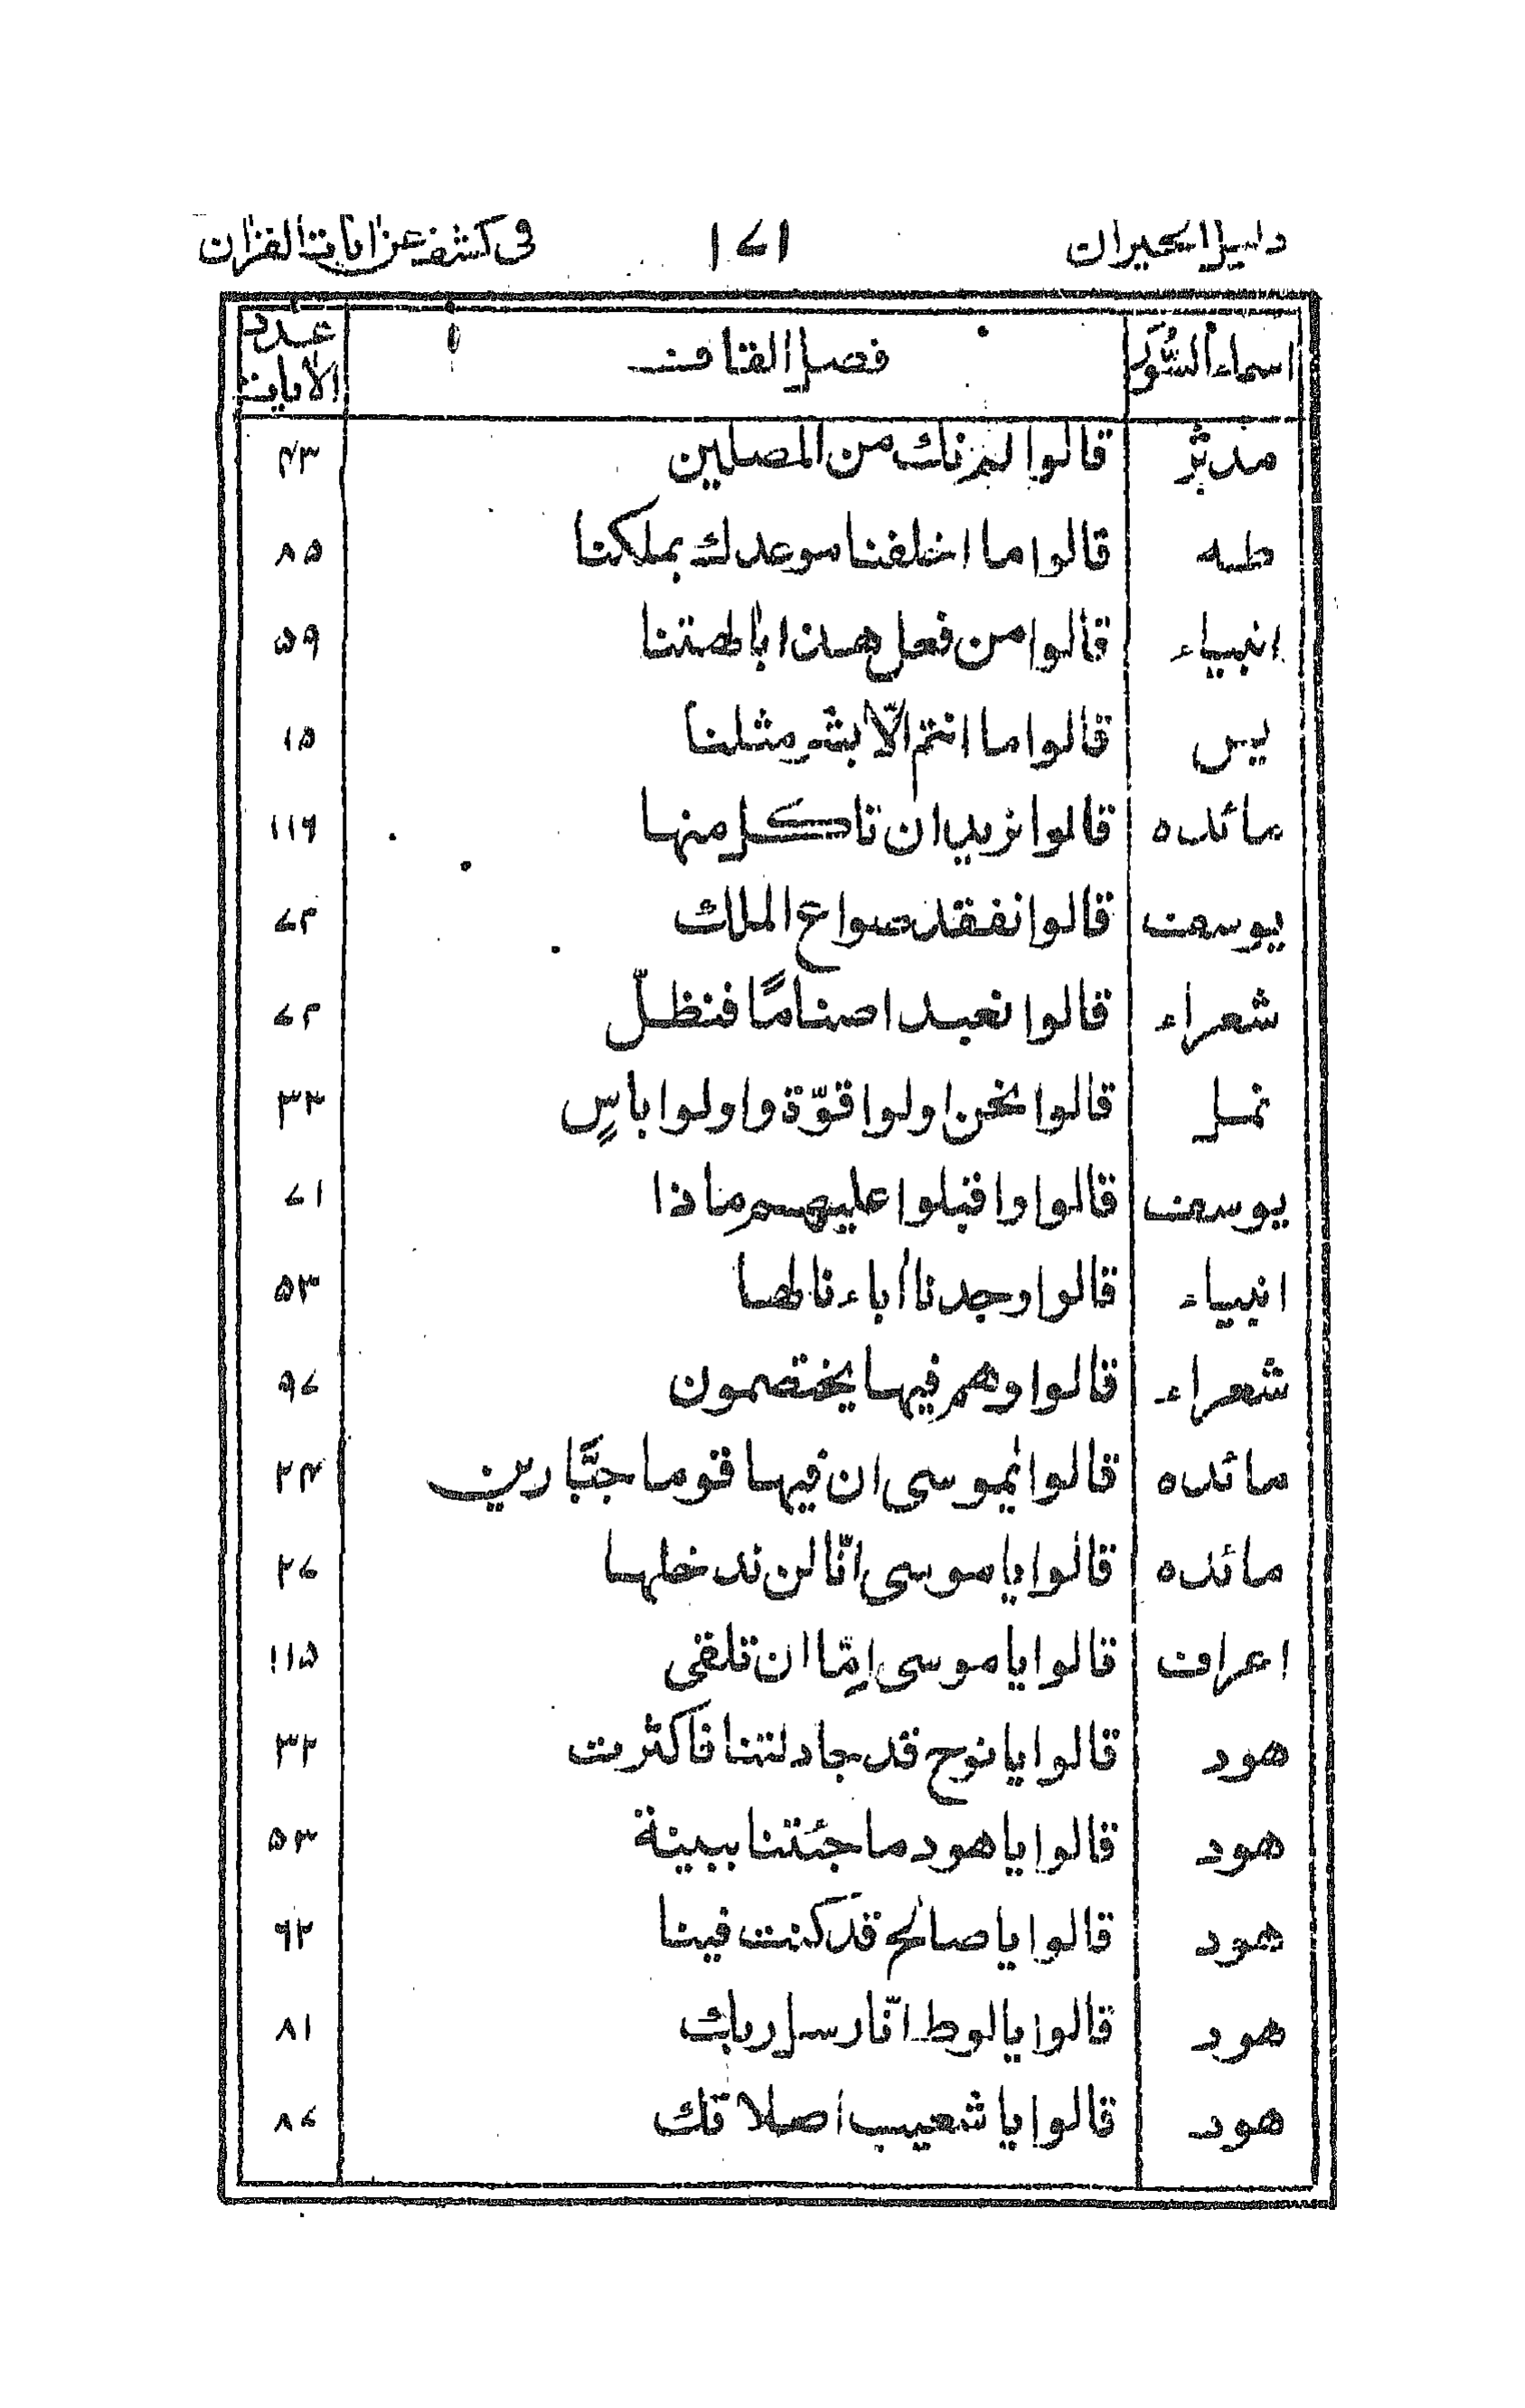 دليل الحيران ١٧١ فى كشف عن اٰيات القراٰن
اسماء السُّوَر فصل القاف عدد الاٰيات
مدثر قالوا لم نك من المصلين ۴۳
طه قالوا ما اخلفنا موعدك بملكنا ۸۵
انبياء قالوا من فعل هذا باٰلهتنا ۵۹
يس قالوا ما انتم الّا بشر مثلنا ۱۵
مائده قالوا نريد ان ناكل منها ۱۱۶
يوسف قالوا نفقد صواع الملك ۷۲
شعراء قالوا نعبد اصنامًا فنظلّ ۷۲
نمل قالوا نحن اولوا قوّة واولوا باسٍ ۳۳
يوسف قالوا واقبلوا عليهم ماذا ۷۱
انبياء قالوا وجدنا اٰباءنا لها ۵۳
شعراء قالوا وهم فيها يختصمون ۹۷
مائده قالوا يٰموسى ان فيها قوما جبَّارين ۲۴
مائده قالوا ياموسى انّا لن ندخلها ۲۷
اعراف قالوا ياموسى اِمّا ان تلقى ۱۱۵
هود قالوا يانوح قد جادلتنا فاكثرت ۳۲
هود قالوا ياهود ما جئتنا ببينة ۵۳
هود قالوا ياصالح قد كنت فينا ۶۲
هود قالوا يالوط انّا رسل ربك ۸۱
هود قالوا ياشعيب اصلاتك ۸۷